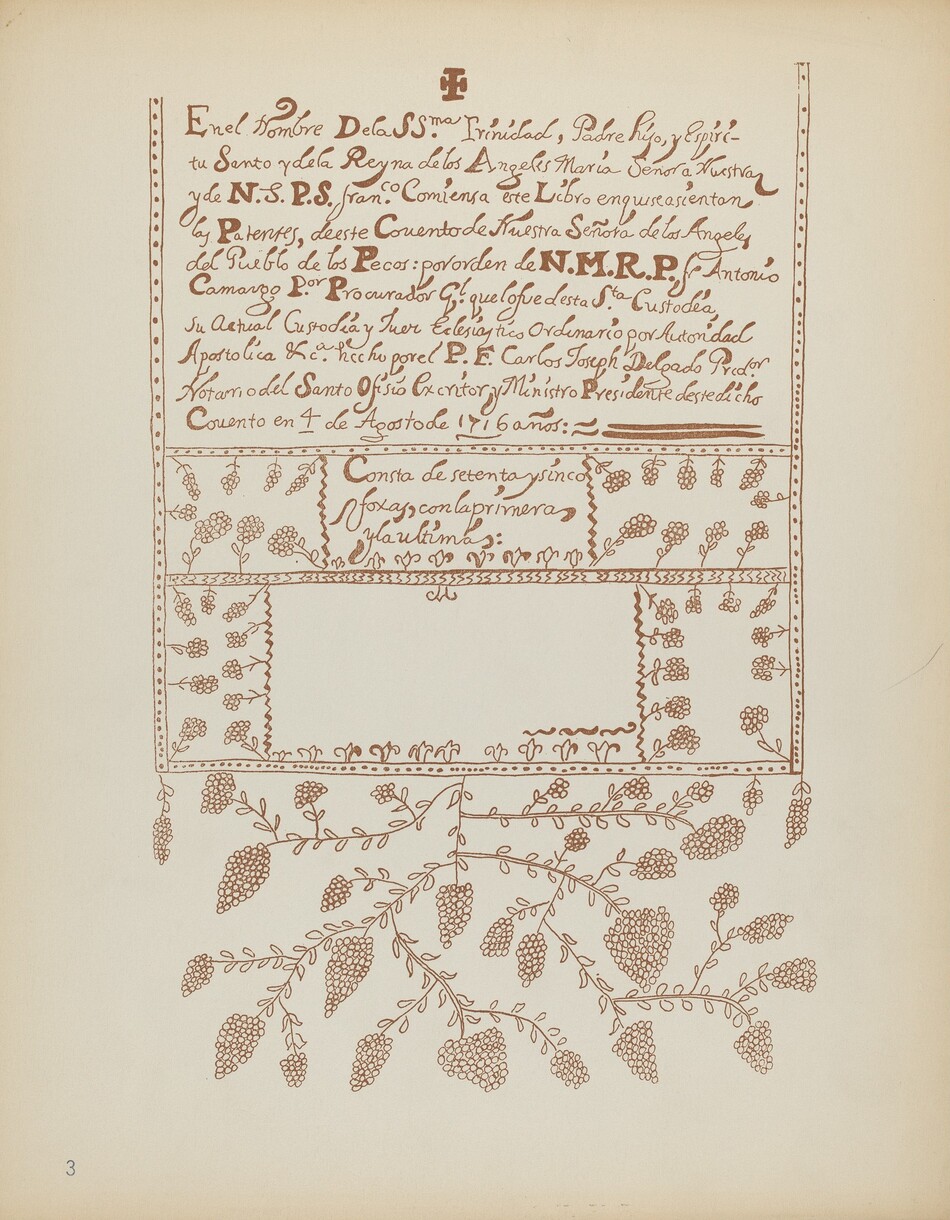 En el Nombre De la SS.ma Trinidad, Padre hijo, y Espiri-
tu Santo y de la Reyna de los Angeles Maria Señora Nuestra
y de N.S. P.S. fran.co Comiensa este Libro en que se asientan
las Patentes, de este Couento de Nuestra Señora de los Angeles
del Pueblo de los Pecos: por orden de N.M.R.P. fr Antonio
Camargo P.or Procurador G.l que lo fue desta S.ta Custodia,
su Actual Custodia y Juez Eclesiastico Ordinario por Autoridad
Apostolica &c.a hecho por el P. F. Carlos Joseph Delgado Pred.or
Notario del Santo Ofisio Excritor, y Ministro Presidente deste dicho
Couento en 4 de Agosto de 1716 años:
Consta de setenta y sinco
foxas, con la primera,
y la ultima:
3